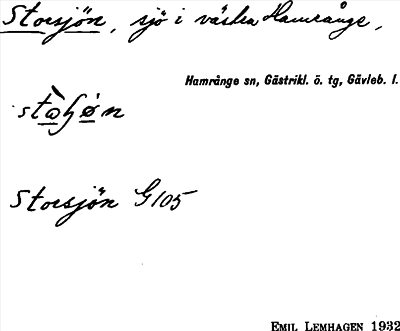 Storsjön, sjö i västra Hamrånge,
Hamrånge sn, Gästrikl. ö. tg, Gävleb. l.
Storsjön G105
EMIL LEMHAGEN 1932